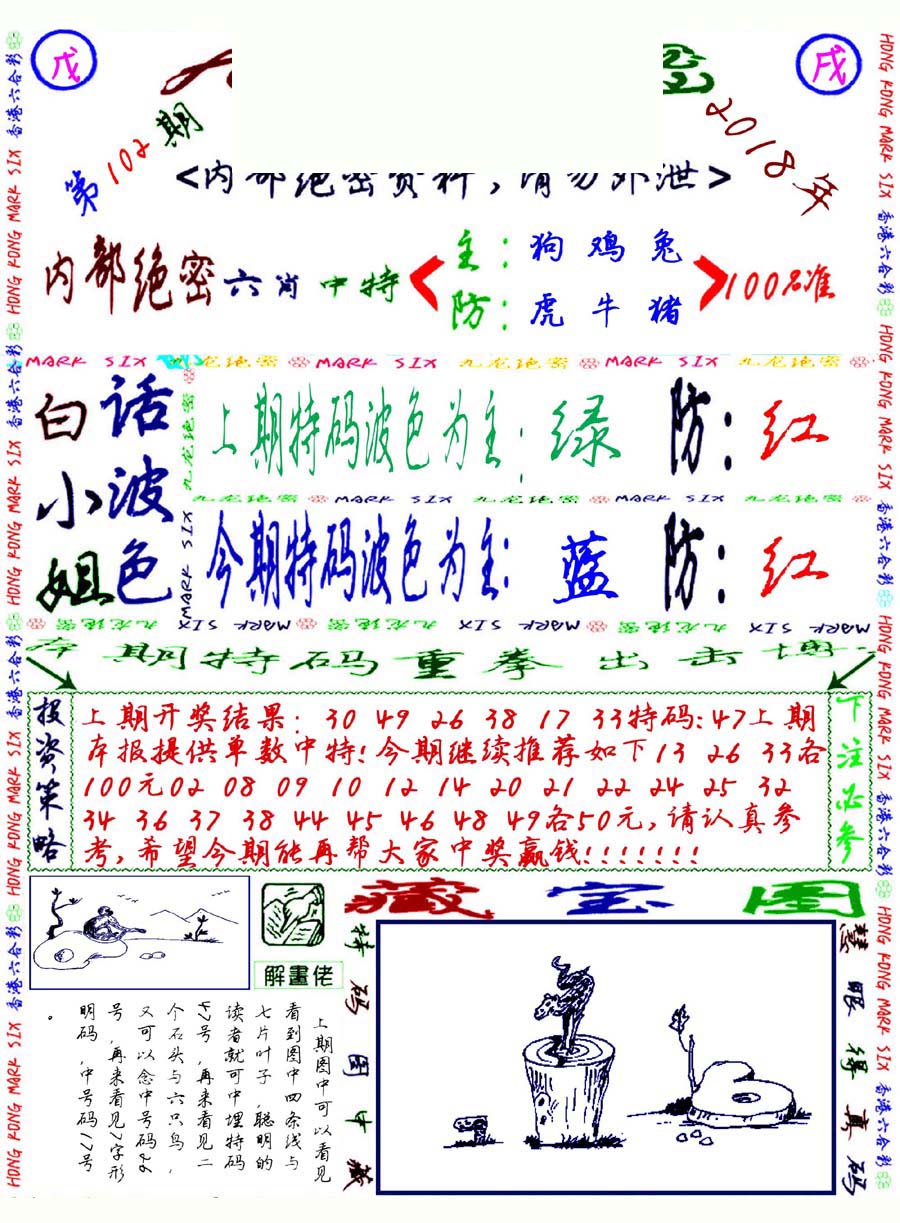 戊
戌
第102期
2018年
<内部绝密资料，请勿外泄>
内部绝密六肖中特
主：狗 鸡 兔
防：虎 牛 猪
100%准
MARK SIX 九龙绝密 MARK SIX 九龙绝密 MARK SIX 九龙绝密
白话
小波
姐色
九龙绝密
MARK SIX
上期特码波色为主：绿 防：红
九龙绝密 MARK SIX 九龙绝密 MARK SIX 九龙绝密
今期特码波色为主：蓝 防：红
九龙绝密 MARK SIX 九龙绝密 MARK SIX 九龙绝密 MARK SIX
本期特码重拳出击博
投资策略
上期开奖结果：30 49 26 38 17 33特码：47上期
本报提供单数中特！今期继续推荐如下13 26 33各
100元02 08 09 10 12 14 20 21 22 24 25 32
34 36 37 38 44 45 46 48 49各50元，请认真参
考，希望今期能再帮大家中奖赢钱！！！！！！！
下注必参
藏宝图
解畫佬
上期图中可以看见
看到图中四条线与
七片叶子，聪明的
读者就可中埋特码
47号，再来看见二
个石头与六只鸟，
又可以念中号码26
号，再来看见7字形
明码，中号码17号
。
特码图中藏
慧眼得真码
HONG KONG MARK SIX 香港六合彩 HONG KONG MARK SIX 香港六合彩 HONG KONG MARK SIX 香港六合彩 HONG KONG MARK SIX 香港六合彩
HONG KONG MARK SIX 香港六合彩 HONG KONG MARK SIX 香港六合彩 HONG KONG MARK SIX 香港六合彩 HONG KONG MARK SIX 香港六合彩